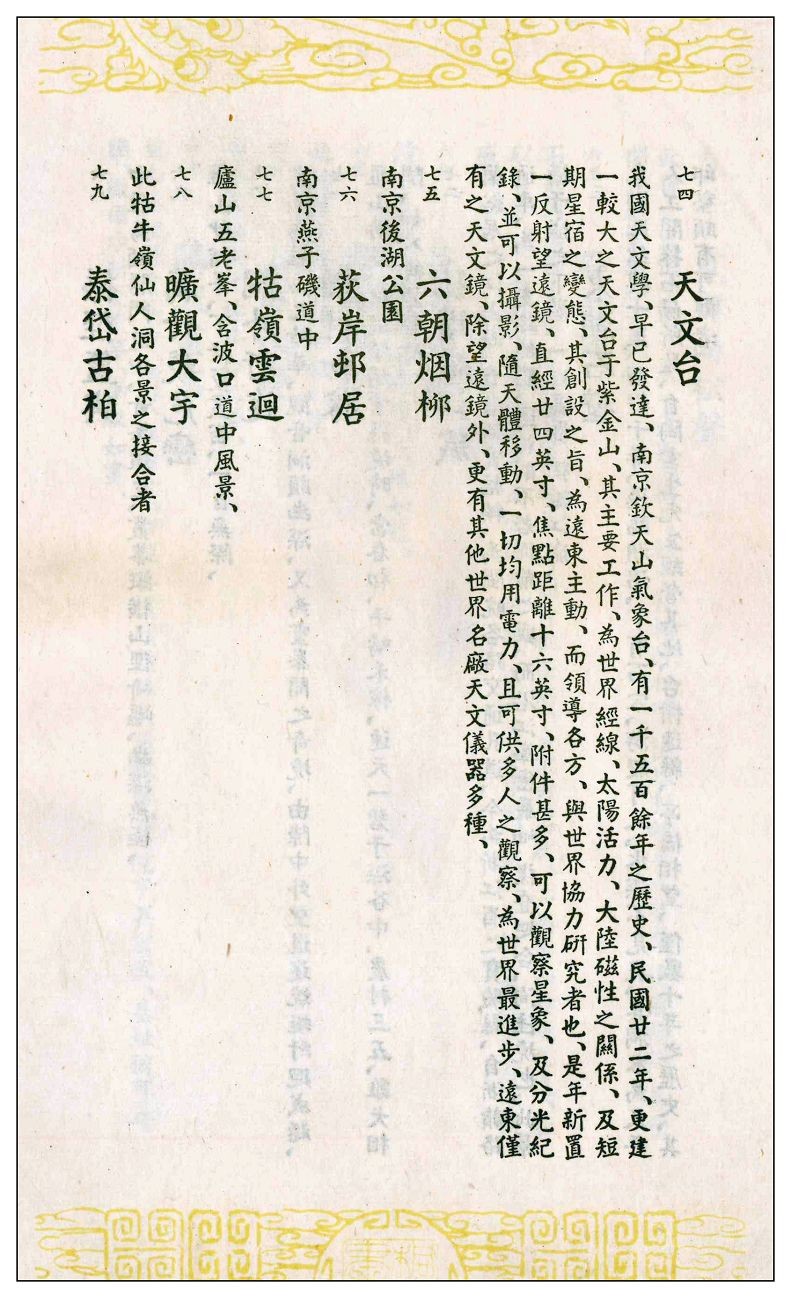 七四 天文台
我國天文學、早已發達、南京欽天山氣象台、有一千五百餘年之歷史、民國廿二年、更建
一較大之天文台于紫金山、其主要工作、為世界經線、太陽活力、大陸磁性之關係、及短
期星宿之變態、其創設之旨、為遠東主動、而領導各方、與世界協力研究者也、是年新置
一反射望遠鏡、直經廿四英寸、焦點距離十六英寸、附件甚多、可以觀察星象、及分光紀
錄、並可以攝影、隨天體移動、一切均用電力、且可供多人之觀察、為世界最進步、遠東僅
有之天文鏡、除望遠鏡外、更有其他世界名廠天文儀器多種、
七五 六朝烟栁
南京後湖公園
七六 荻岸邨居
南京燕子磯道中
七七 牯嶺雲迴
廬山五老峯、含波口道中風景、
七八 曠觀大宇
此牯牛嶺仙人洞各景之接合者
七九 泰岱古柏